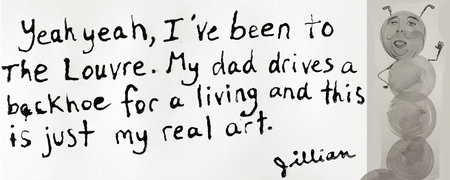 Yeah yeah, I've been to
The Louvre. My dad drives a
backhoe for a living and this
is just my real art.
Jillian